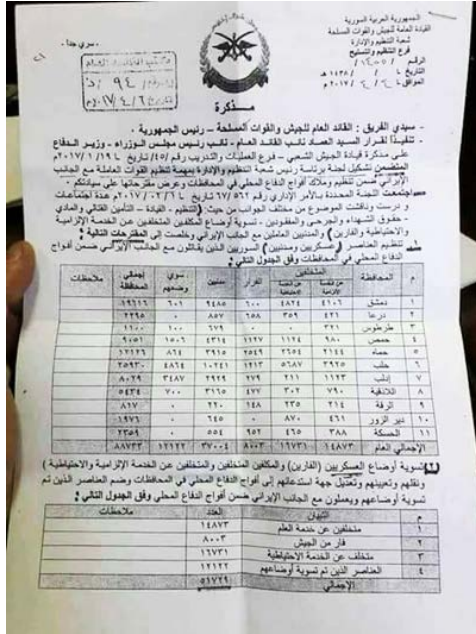 الجمهورية العربية السورية
القيادة العامة للجيش والقوات المسلحة
شعبة التنظيم والإدارة
فرع التنظيم والتسليح
- سري جداً -
الرقم /
التاريخ / / ١٤٣٨ هـ
الموافق / / ٢٠١٧ م
مذكرة
- سيدي الفريق : القائد العام للجيش والقوات المسلحة – رئيس الجمهورية .
- تنفيذاً لقرار السيد العماد نائب القائد العام – نائب رئيس مجلس الوزراء – وزير الدفاع
على مذكرة قيادة الجيش الشعبي – فرع العمليات والتدريب رقم /٤٥/ تاريخ ١٩/ ١ /٢٠١٧م
المتضمن تشكيل لجنة برئاسة رئيس شعبة التنظيم والإدارة بمهمة تنظيم القوات العاملة مع الجانب
الإيراني ضمن تنظيم وملاك أفواج الدفاع المحلي في المحافظات وعرض مقترحاتها على سيادتكم .
اجتمعت اللجنة المحددة بالأمر الإداري رقم ٦٧/٥٦٢ تاريخ عدة اجتماعات
و درست وناقشت الموضوع من مختلف الجوانب من حيث (التنظيم - القيادة - التأمين القتالي والمادي
- حقوق الشهداء والجرحى والمفقودين - تسوية أوضاع المكلفين المتخلفين عن الخدمة الإلزامية
والاحتياطية والفارين) والمدنيين العاملين مع الجانب إيراني وخلصت إلى المقترحات التالية :
تنظيم العناصر (عسكريين ومدنيين) السوريين الذين يقاتلون مع الجانب الإيراني ضمن أفواج
الدفاع المحلي في المحافظات وفق الجدول التالي :
م المحافظة المتخلفين الفرار مدنيين سوي وضعهم إجمالي المحافظة ملاحظات
عن خدمة الإلزامية عن خدمة الاحتياطية
١ دمشق ٤١٠٦ ٤٨٢٤ ٦٠٠ ٩٤٨٥ ٦٠١ ١٩٦١٦
٢ درعا ٤٢١ ٣٥٩ ٦٥٨ ٨٥٧ ٠ ٢٢٩٥
٣ طرطوس ٣٢١ ٠ ٠ ٦٧٩ ١٠٠ ١١٠٠
٤ حمص ٩٨٠ ١١٢٤ ١١٢٧ ٤٣١٤ ١٥٠٦ ٩٠٥١
٥ حماه ٢١٤٤ ٢٦٥٤ ٢٥٤٩ ٣٩١٥ ٨٦٤ ١٢١٢٦
٦ حلب ٣٩٢٥ ٥٦٨٧ ١٢١٣ ١٠٢٤١ ٤٨٦٤ ٢٥٩٣٠
٧ إدلب ١١٢٣ ٢١١ ٢٧٩ ٢٩٢٩ ٣٤٨٧ ٨٠٢٩
٨ اللاذقية ٧٩٠ ٣٠٢ ٤٧٧ ٣١٦٥ ٧٠٠ ٥٤٣٤
٩ الرقة ٢١٤ ٢٣٥ ١٤٨ ٢٢٠ ٠ ٨١٧
١٠ دير الزور ٤٦١ ٨٧٠ ٠ ٦٤٥ ٠ ١٩٧٦
١١ الحسكة ٣٨٨ ٤٦٥ ٩٥٢ ٥٥٤ ٠ ٢٣٥٩
الإجمالي العام ١٤٨٧٣ ١٦٧٣١ ٨٠٠٣ ٣٧٠٠٤ ١٢١٢٢ ٨٨٧٣٣
تسوية أوضاع العسكريين (الفارين) والمكلفين المتخلفين والمتخلفين عن الخدمة الإلزامية والاحتياطية )
ونقلهم وتعيينهم وتعديل جهة استدعائهم إلى أفواج الدفاع المحلي في المحافظات وضم العناصر الذين تم
تسوية أوضاعهم ويعملون مع الجانب الإيراني ضمن أفواج الدفاع المحلي وفق الجدول التالي :
م البيان العدد ملاحظات
١ متخلفين عن خدمة العلم ١٤٨٧٣
٢ فار من الجيش ٨٠٠٣
٣ متخلف عن الخدمة الاحتياطية ١٦٧٣١
٤ العناصر الذين تم تسوية أوضاعهم ١٢١٢٢
الإجمالي ٥١٧٢٩